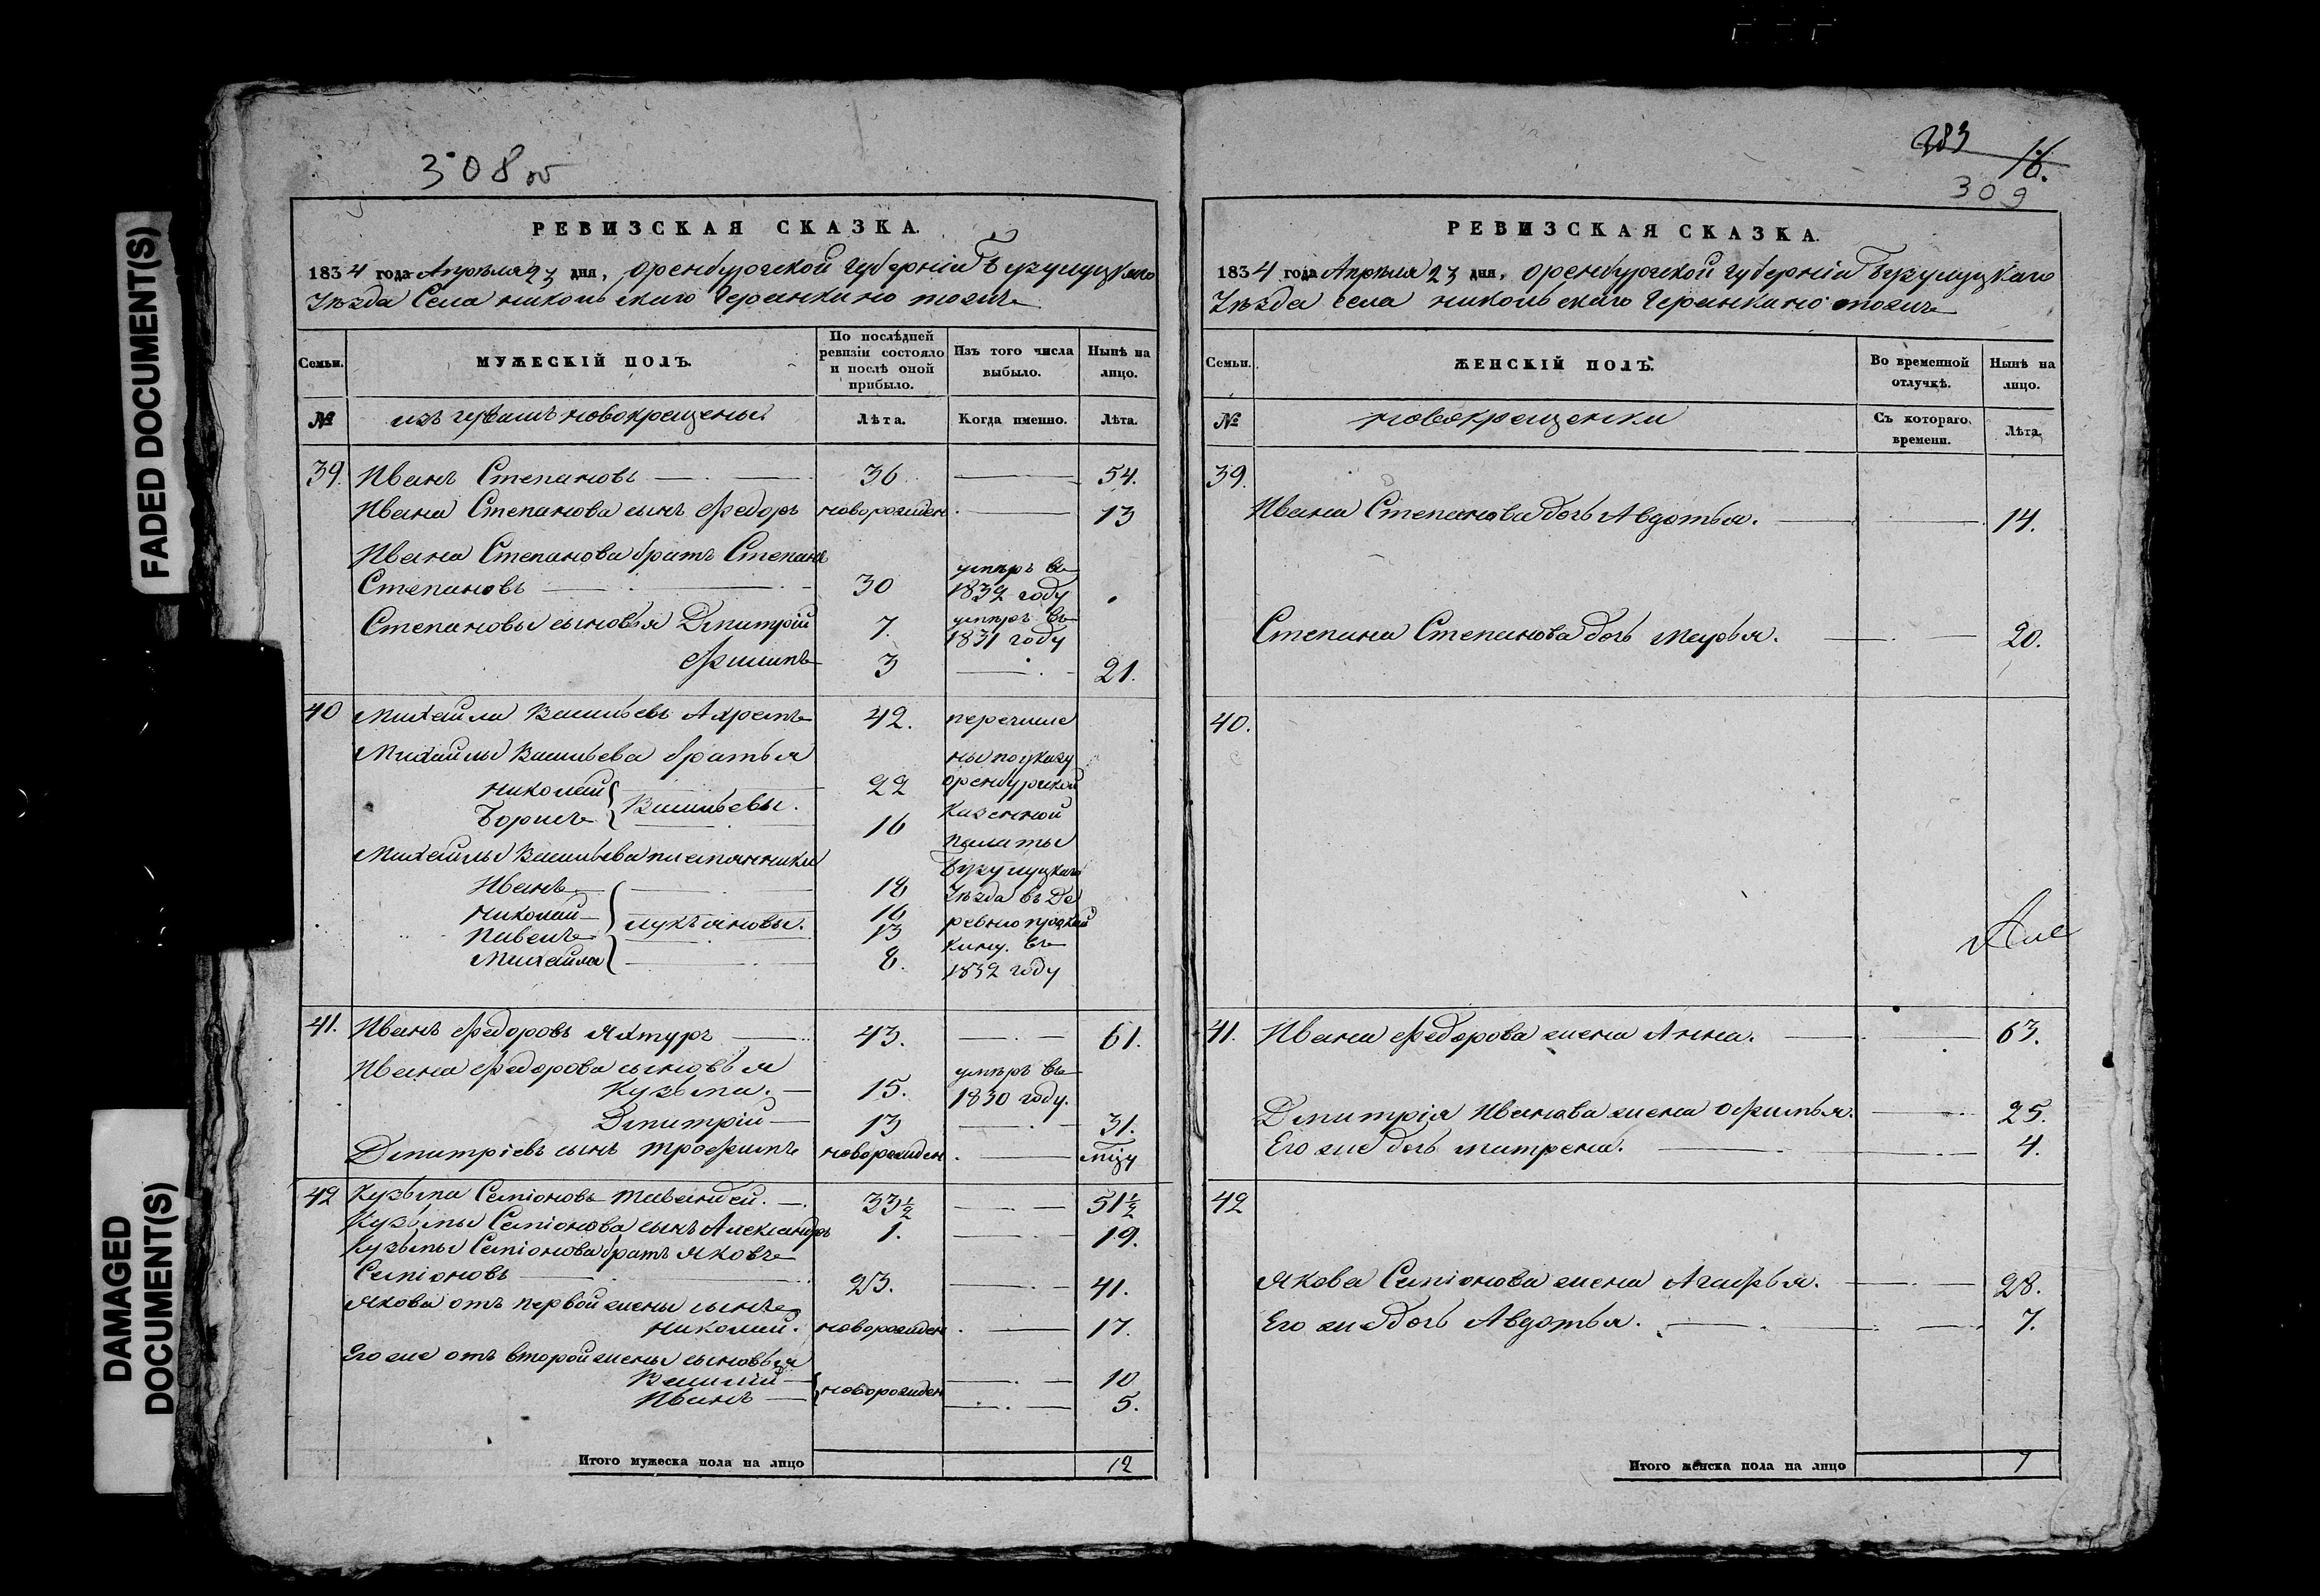 FADED DOCUMENT(S)
DAMAGED DOCUMENT(S)
308 об
РЕВИЗСКАЯ СКАЗКА.
1834 года Апрѣля 23 дня, Оренбургской губерніи Бузулуцкаго
Уѣзда Села никольскаго Черанкино тожъ
Семьи. МУЖЕСКІЙ ПОЛЪ. По послѣдней ревизіи состояло и послѣ оной прибыло. Изъ того числа выбыло. Нынѣ на лицо.
№ изъ чувашъ новокрещены Лѣта. Когда именно. Лѣта.
39. Иванъ Степановъ 36 54.
Ивана Степанова сынъ Федоръ новорожден. 13
Ивана Степанова братъ Степанъ
Степановъ 30 умѣръ въ 1832 году
Степановы сыновья Дмитрій 7. умѣръ въ 1831 году
Филипъ 3 21.
40 Михайла Васильевъ Ахремъ 42. перечисле
Михайлы Васильева братья ны по указу
Николай 22 Оренбургской
Борисъ Васильевы. 16 Казенной
палаты
Михайлы Васильева племянники Бузулуцкаго
Иванъ 18 Уѣзда въ Де
Николай 16 ревню
Павелъ Лукъяновы. 13 кину. въ
Михайла 8. 1832 году
41. Иванъ Федоровъ Яхтуръ 43. 61.
Ивана Федорова сыновья
Кузьма. 15. умѣръ въ 1830 году.
Дмитрій 13 31.
Дмитріевъ сынъ Трофимъ новорожден.
42 Кузьма Семіоновъ Тивандей. 33½ 51½
Кузьмы Семіонова сынъ Александръ 1. 19.
Кузьмы Семіонова братъ Яковъ
Семіоновъ 23. 41.
Якова отъ первой жены сынъ
Николай. новорожден. 17.
Его же отъ второй жены сыновья
Василій новорожден 10
Иванъ 5.
Итого мужеска пола на лицо 12
283
16.
309
РЕВИЗСКАЯ СКАЗКА.
1834 года Апрѣля 23 дня, Оренбургской губерніи Бузулуцкаго
Уѣзда села никольскаго Черанкино тожъ
Семьи. ЖЕНСКІЙ ПОЛЪ. Во временной отлучкѣ. Нынѣ на лицо.
№ новокрещенки Съ котораго времени. Лѣта.
39.
Ивана Степанова дочь Авдотья. 14.
Степана Степанова дочь Марья. 20.
40.
41. Ивана Федорова жена Анна. 63.
Дмитрія Иванова жена Офимья. 25.
Его же дочь Матрена. 4.
42
Якова Семіонова жена Агафья. 28.
Его же дочь Авдотья. 7.
Итого женска пола на лицо 7